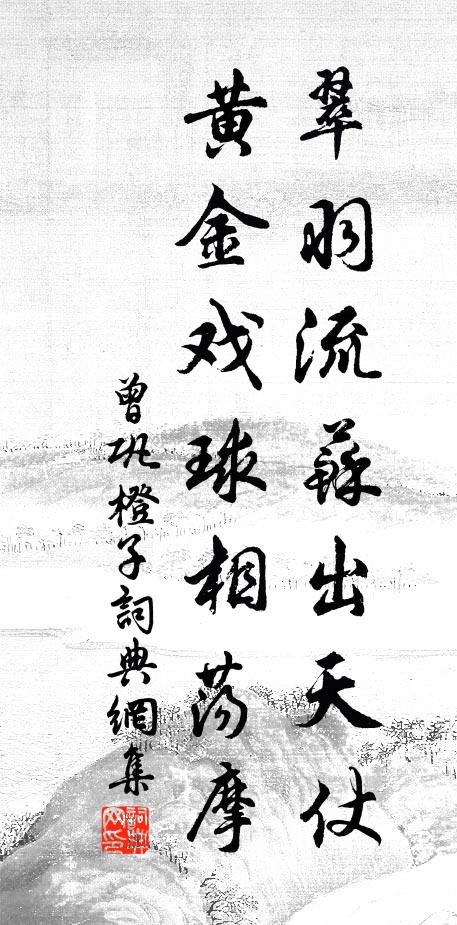 翠羽流蘇出天仗
黃金戏球相荡摩
曾巩橙子詞典網集